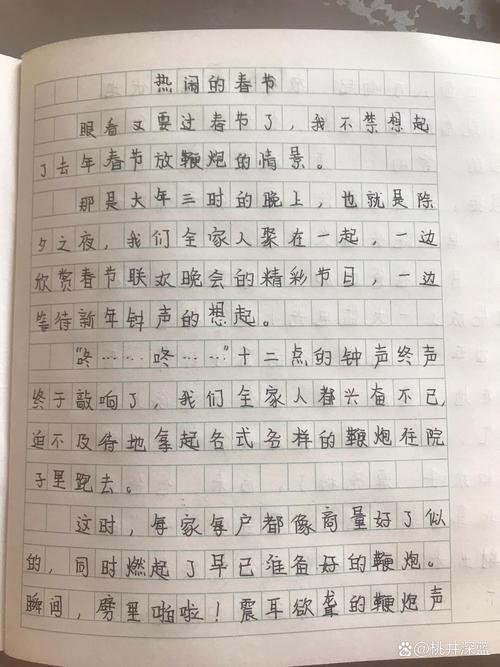 热闹的春节
眼看又要过春节了，我不禁想起
了去年春节放鞭炮的情景。
那是大年三时的晚上，也就是除
夕之夜，我们全家人聚在一起，一边
欣赏春节联欢晚会的精彩节目，一边
等待新年钟声的想起。
“咚……咚……”十二点的钟声终声
终于敲响了，我们全家人都兴奋不已，
迫不及待地拿起各式各样的鞭炮往院
子里跑去。
这时，每家每户都像商量好了似
的，同时燃起了早已准备好的鞭炮。
瞬间，劈里啪啦！震耳欲聋的鞭炮声
Bai百科@桃井深蓝